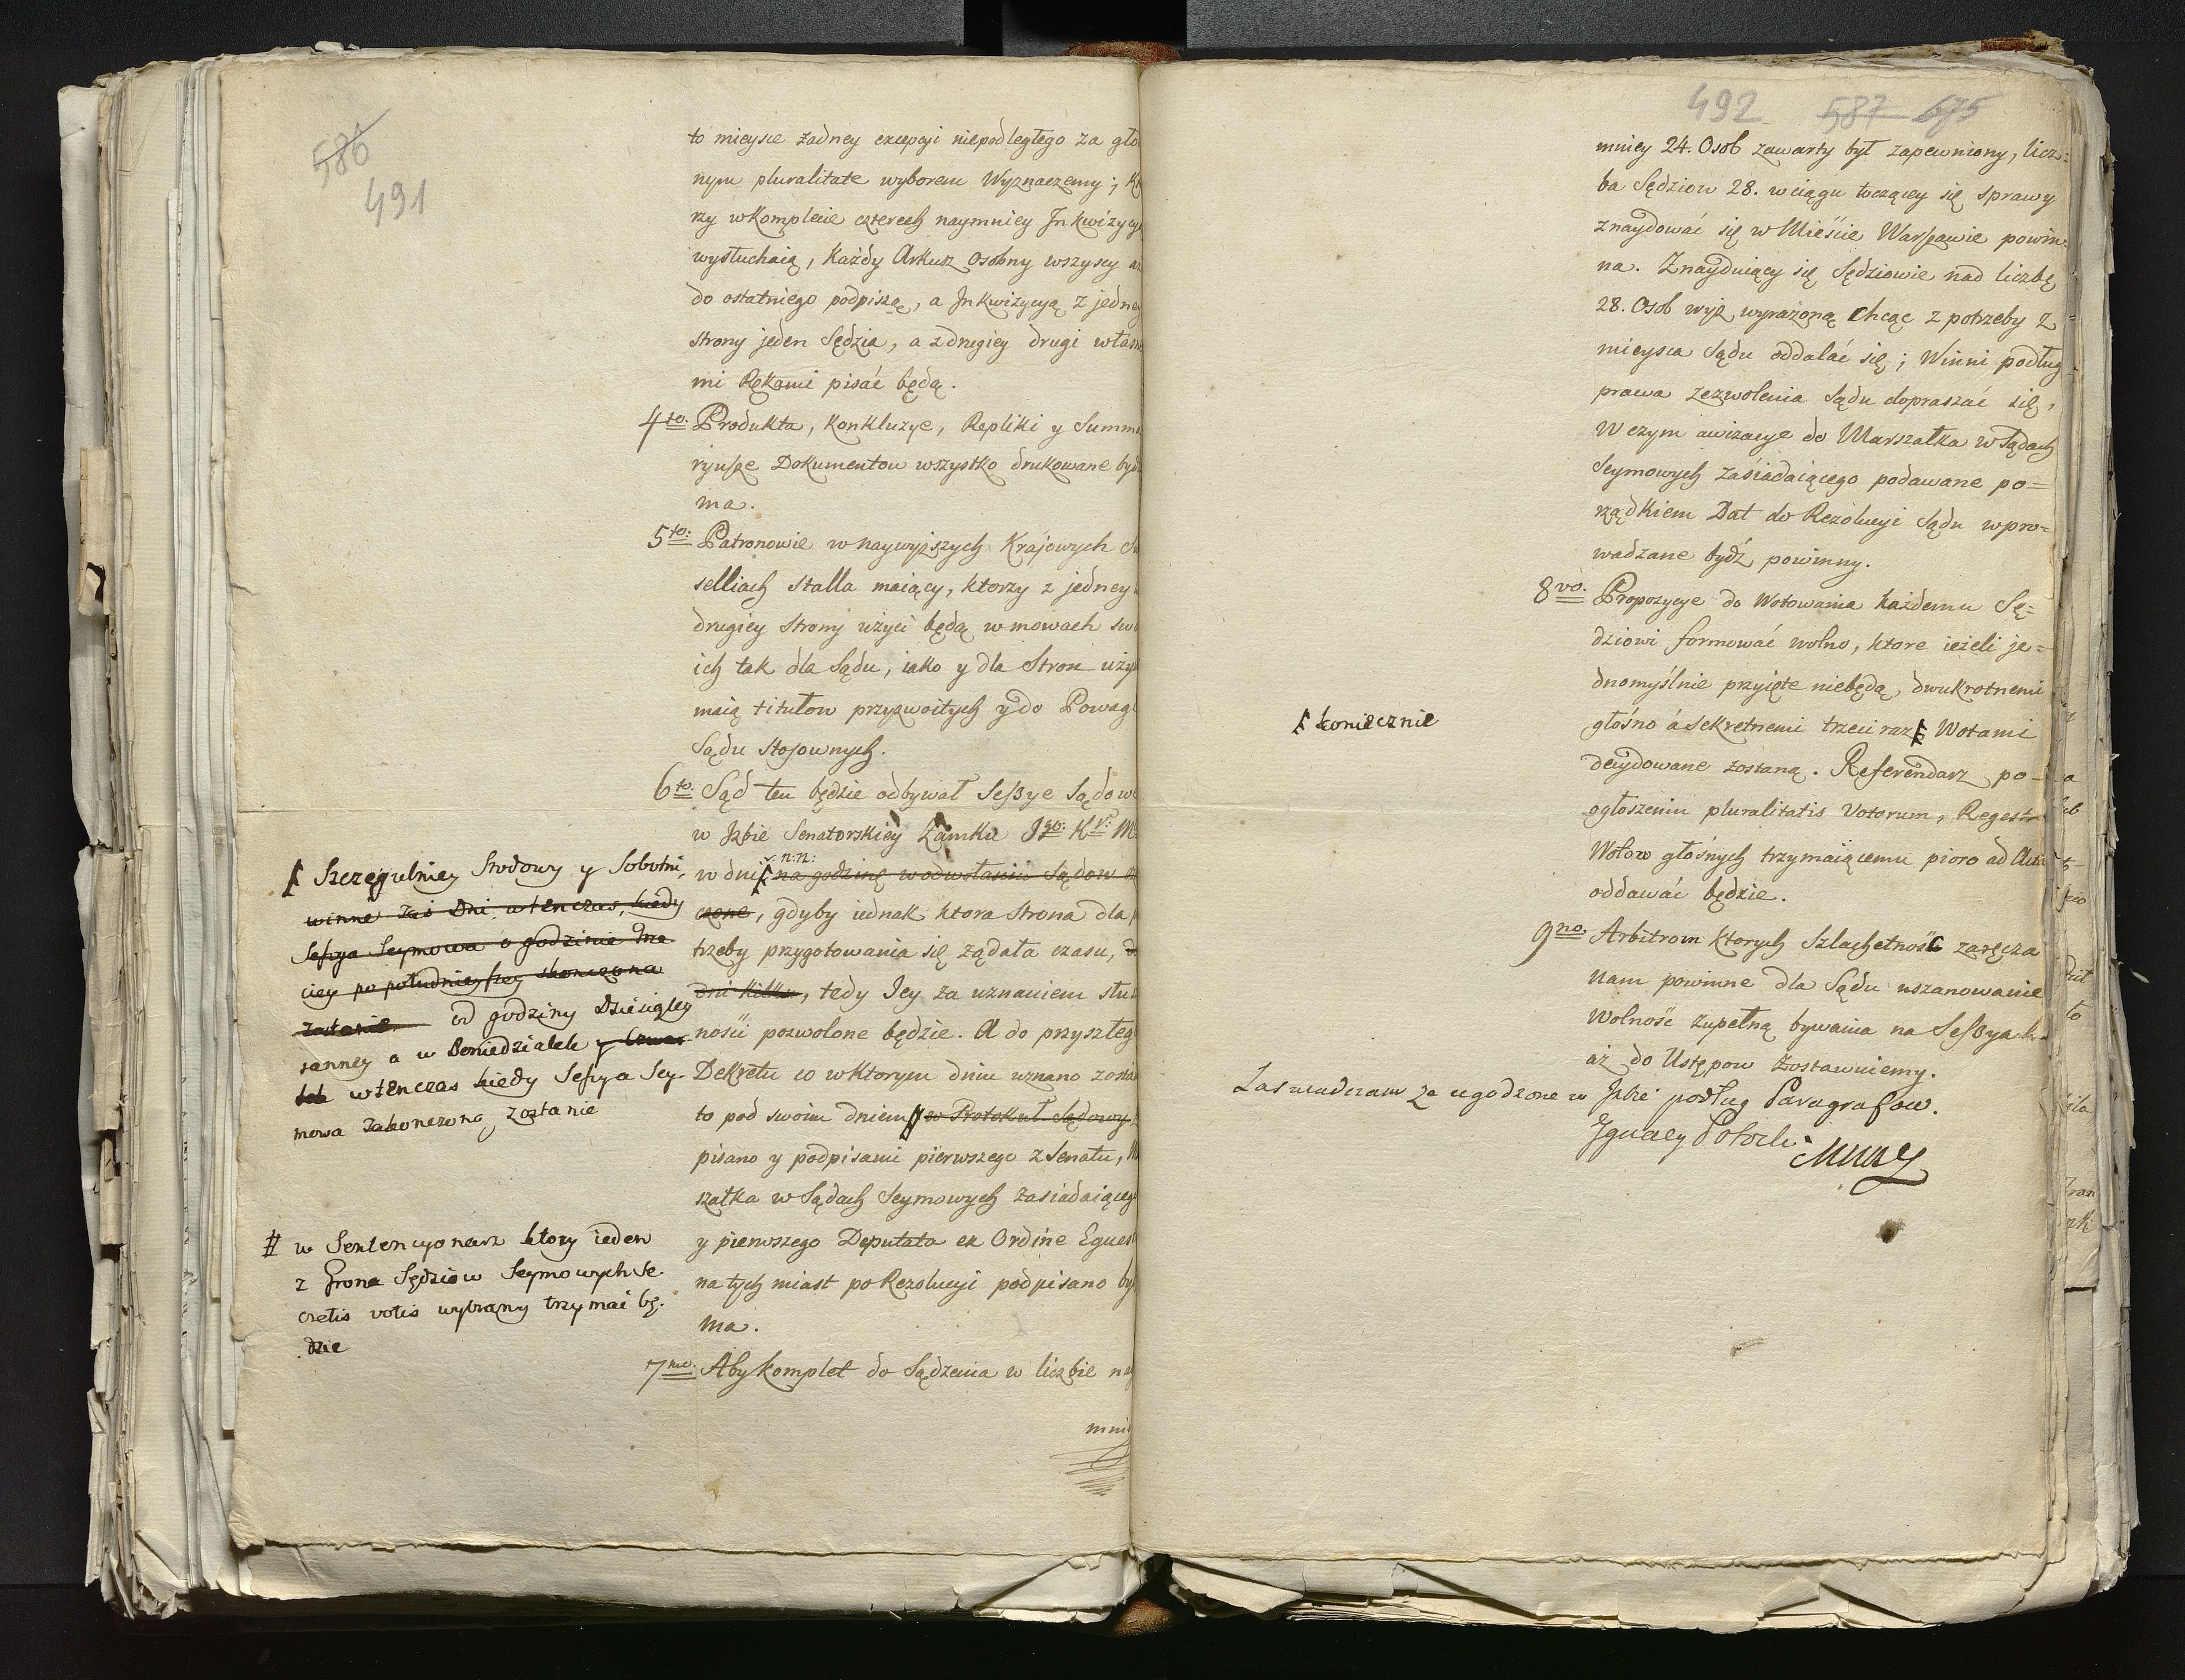 586
491
to mieysce żadney excepcyi niepodległego za gło
nym pluralitate wyborem Wyznaczemy; Kt
rzy w Komplecie czterech naymniey Inkwizycy
wysłuchaią, Każdy Arkusz osobny wszyscy a
do ostatniego podpiszą, a Inkwizycyą z jedney
strony jeden Sędzia, a z drugiey drugi własne
mi Rękami pisać będą.
4to: Produkta, Konkluzye, Repliki y Summa
ryusze Dokumentow wszystko drukowane bydź
ma.
5to: Patronowie w naywyższych Krajowych Su
selliach Stalla maiący, ktorzy z jedney
drugiey Strony użyci będą w mowach swo
ich tak dla Sądu, iako y dla Stron uży
maią titułow przyzwoitych y do Powagi
Sądu stosownych.
6to: Sąd ten będzie odbywał Seßye Sądowe
w Izbie Senatorskiey Zamku Jgo: K M
v: n: n:
w dni na godzinę w odwołaniu Sądow
czone, gdyby iednak ktora Strona dla
trzeby przygotowania się żądała czasu,
dni kilka, tedy Jey za uznaniem słu
ności pozwolone będzie. A do przyszłeg
Dekretu co w ktorym dniu uznano zosta
to pod swoim dniem w Protokuł Sądowy
pisano y podpisami pierwszego z Senatu, M
szałka w Sądach Seymowych zasiadaiąceg
y pierwszego Deputata ex Ordine Eques
natych miast po Rezolucyi podpisano by
ma.
7mo: Aby komplet do Sądzenia w liczbie nay
mni
Szczegulniey Srodowy y Sobotni,
winne zaś Dni, wtenczas, kiedy
Seßya Seymowa o godzinie trze
ciey po południeyszey skonczona
zostanie od godziny Dziesiątey
ranney a w Poniedziałek y Czwar
tek wtenczas kiedy Seßya Sey
mowa zakonczona zostanie
w Sentencyonarz ktory ieden
z Grona Sędziow Seymowych Se
cretis votis wybrany trzymać bę
dzie
492 587 675
mniey 24. Osob zawarty był zapewniony, licz=
ba Sędziow 28. w ciągu toczącey się sprawy
znaydować się w Mieście Warszawie powin
na. Znayduiący się Sędziowie nad liczbę
28. Osob wyż wyrażoną Chcąc z potrzeby z
mieysca Sądu oddalać się; Winni podług
prawa zezwolenia Sądu dopraszać się,
W czym awizacye do Marszałka w Sądach
Seymowych zasiadaiącego podawane po=
rządkiem Dat do Rezolucyi Sądu wpro=
wadzane bydź powinny.
8vo. Propozycye do Wotowania każdemu Sę=
dziowi formować wolno, ktore ieżeli je=
dnomyślnie przyięte niebędą, dwukrotnemi
głośno á sekretnemi trzeci raz Wotami
koniecznie
decydowane zostaną. Referendarz po
ogłoszeniu pluralitatis Votorum, Regestr
Wotow głośnych trzymaiącemu pioro ad Acta
oddawać będzie.
9no. Arbitrom ktorych Szlachetność zaręcza
nam powinne dla Sądu uszanowanie
Wolność zupełną bywania na Seßyach
aż do Ustępow zostawuiemy.
Zaswiadczam ze ugodzone w Izbie podług Paragrafow.
Ignacy Potocki